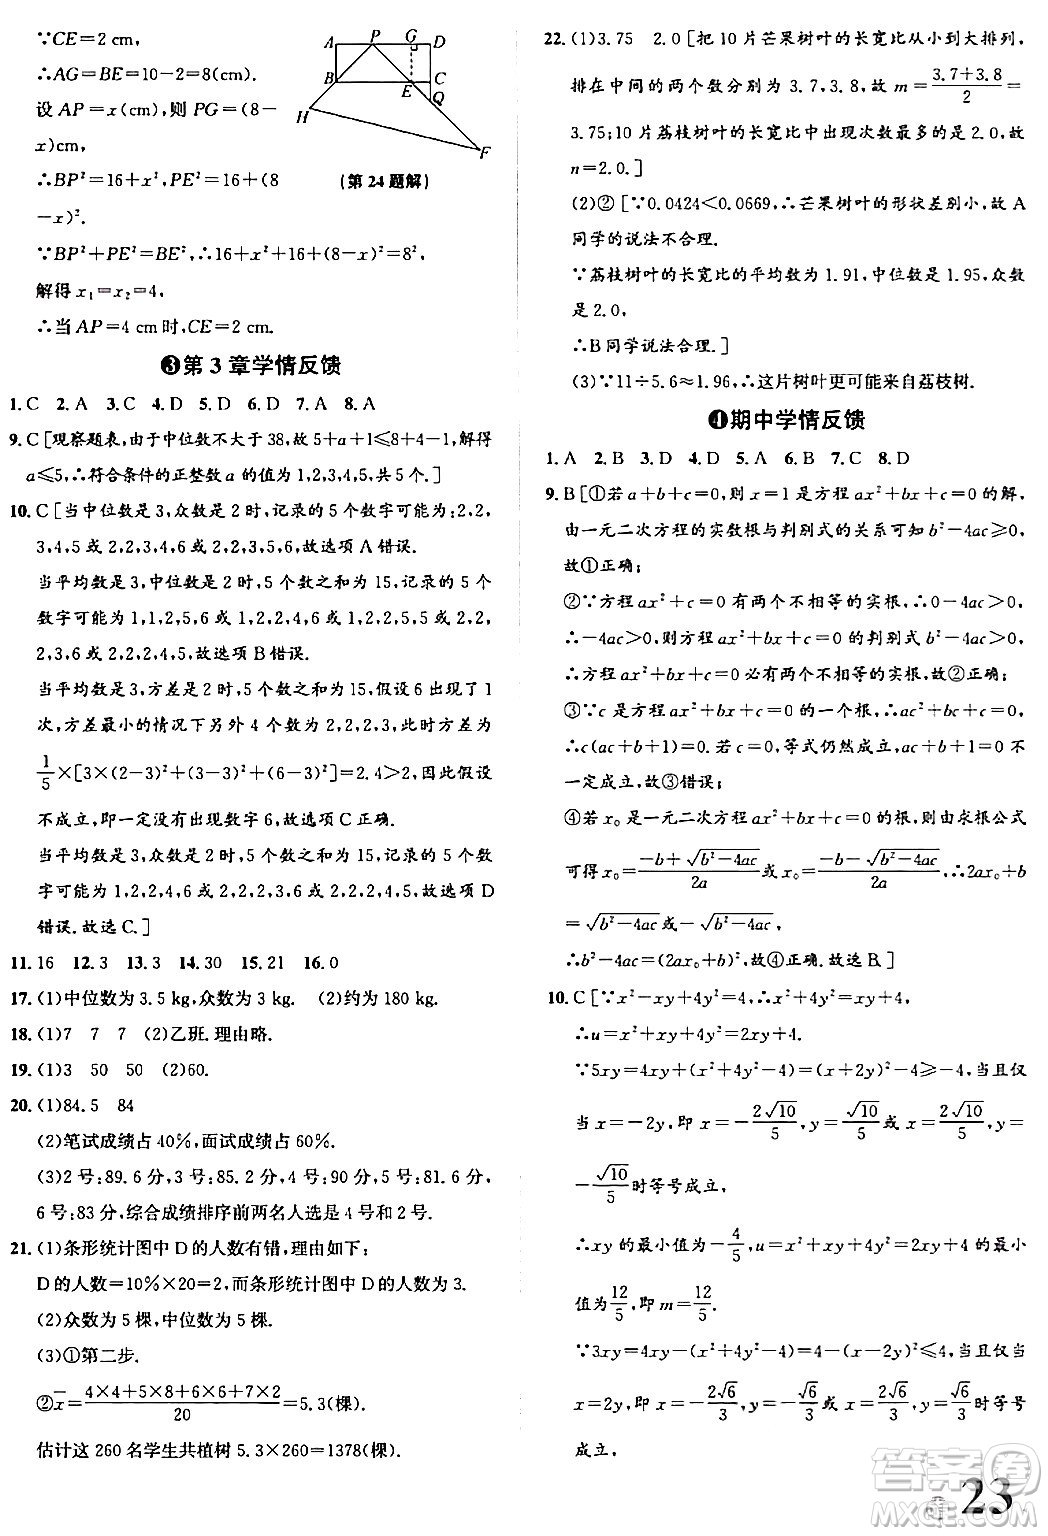 ∵CE=2 cm,
∴AG=BE=10-2=8(cm).
设 AP=x(cm),则 PG=(8-
x)cm,
∴BP²=16+x²,PE²=16+(8
-x)².
A P G D
B E C
Q
H
F
(第 24 题解)
∵BP²+PE²=BE²,∴16+x²+16+(8-x)²=8²,
解得 x₁=x₂=4,
∴当 AP=4 cm 时,CE=2 cm.
❸第 3 章学情反馈
1. C 2. A 3. C 4. D 5. D 6. D 7. A 8. A
9. C[观察题表,由于中位数不大于 38,故 5+a+1≤8+4-1,解得
a≤5,∴符合条件的正整数 a 的值为 1,2,3,4,5,共 5 个.]
10. C[当中位数是 3,众数是 2 时,记录的 5 个数字可能为:2,2,
3,4,5 或 2,2,3,4,6 或 2,2,3,5,6,故选项 A 错误.
当平均数是 3,中位数是 2 时,5 个数之和为 15,记录的 5 个
数字可能为 1,1,2,5,6 或 1,2,2,4,6 或 1,2,2,5,5 或 2,2,2,
2,3,6 或 2,2,2,4,5,故选项 B 错误.
当平均数是 3,方差是 2 时,5 个数之和为 15,假设 6 出现了 1
次,方差最小的情况下另外 4 个数为 2,2,2,3,此时方差为
1/5×[3×(2-3)²+(3-3)²+(6-3)²]=2.4>2,因此假设
不成立,即一定没有出现数字 6,故选项 C 正确.
当平均数是 3,众数是 2 时,5 个数之和为 15,记录的 5 个数
字可能为 1,2,2,4,6 或 1,2,2,5,5 或 2,2,2,3,6,故选项 D
错误.故选 C.]
11. 16 12. 3 13. 3 14. 30 15. 21 16. 0
17. (1)中位数为 3.5 kg,众数为 3 kg. (2)约为 180 kg.
18. (1)7 7 7 (2)乙班.理由略.
19. (1)3 50 50 (2)60.
20. (1)84.5 84
(2)笔试成绩占 40%,面试成绩占 60%.
(3)2 号:89.6 分,3 号:85.2 分,4 号:90 分,5 号:81.6 分,
6 号:83 分,综合成绩排序前两名人选是 4 号和 2 号.
21. (1)条形统计图中 D 的人数有错,理由如下:
D 的人数=10%×20=2,而条形统计图中 D 的人数为 3.
(2)众数为 5 棵,中位数为 5 棵.
(3)①第二步.
②x̄=(4×4+5×8+6×6+7×2)/20=5.3(棵).
估计这 260 名学生共植树 5.3×260=1378(棵).
22. (1)3.75 2.0[把 10 片芒果树叶的长宽比从小到大排列,
排在中间的两个数分别为 3.7,3.8,故 m=(3.7+3.8)/2=
3.75;10 片荔枝树叶的长宽比中出现次数最多的是 2.0,故
n=2.0.]
(2)②[∵0.0424<0.0669,∴芒果树叶的形状差别小,故 A
同学的说法不合理.
∵荔枝树叶的长宽比的平均数为 1.91,中位数是 1.95,众数
是 2.0,
∴B 同学说法合理.]
(3)∵11÷5.6≈1.96,∴这片树叶更可能来自荔枝树.
❹期中学情反馈
1. A 2. B 3. D 4. D 5. A 6. B 7. C 8. D
9. B[①若 a+b+c=0,则 x=1 是方程 ax²+bx+c=0 的解,
由一元二次方程的实数根与判别式的关系可知 b²-4ac≥0,
故①正确;
②∵方程 ax²+c=0 有两个不相等的实根,∴0-4ac>0,
∴-4ac>0,则方程 ax²+bx+c=0 的判别式 b²-4ac>0,
∴方程 ax²+bx+c=0 必有两个不相等的实根,故②正确;
③∵c 是方程 ax²+bx+c=0 的一个根,∴ac²+bc+c=0,
∴c(ac+b+1)=0.若 c=0,等式仍然成立,ac+b+1=0 不
一定成立,故③错误;
④若 x₀ 是一元二次方程 ax²+bx+c=0 的根,则由求根公式
可得 x₀=(-b+√(b²-4ac))/2a 或 x₀=(-b-√(b²-4ac))/2a,∴2ax₀+b
=√(b²-4ac)或-√(b²-4ac),
∴b²-4ac=(2ax₀+b)²,故④正确.故选 B.]
10. C[∵x²-xy+4y²=4,∴x²+4y²=xy+4,
∴u=x²+xy+4y²=2xy+4.
∵5xy=4xy+(x²+4y²-4)=(x+2y)²-4≥-4,当且仅
当 x=-2y,即 x=-2√10/5,y=√10/5 或 x=2√10/5,y=
-√10/5 时等号成立,
∴xy 的最小值为-4/5,u=x²+xy+4y²=2xy+4 的最小
值为12/5,即 m=12/5.
∵3xy=4xy-(x²+4y²-4)=4-(x-2y)²≤4,当且仅当
x=2y,即 x=-2√6/3,y=-√6/3 或 x=2√6/3,y=√6/3 时等号
成立,
答案圈
MXQE.COM
23